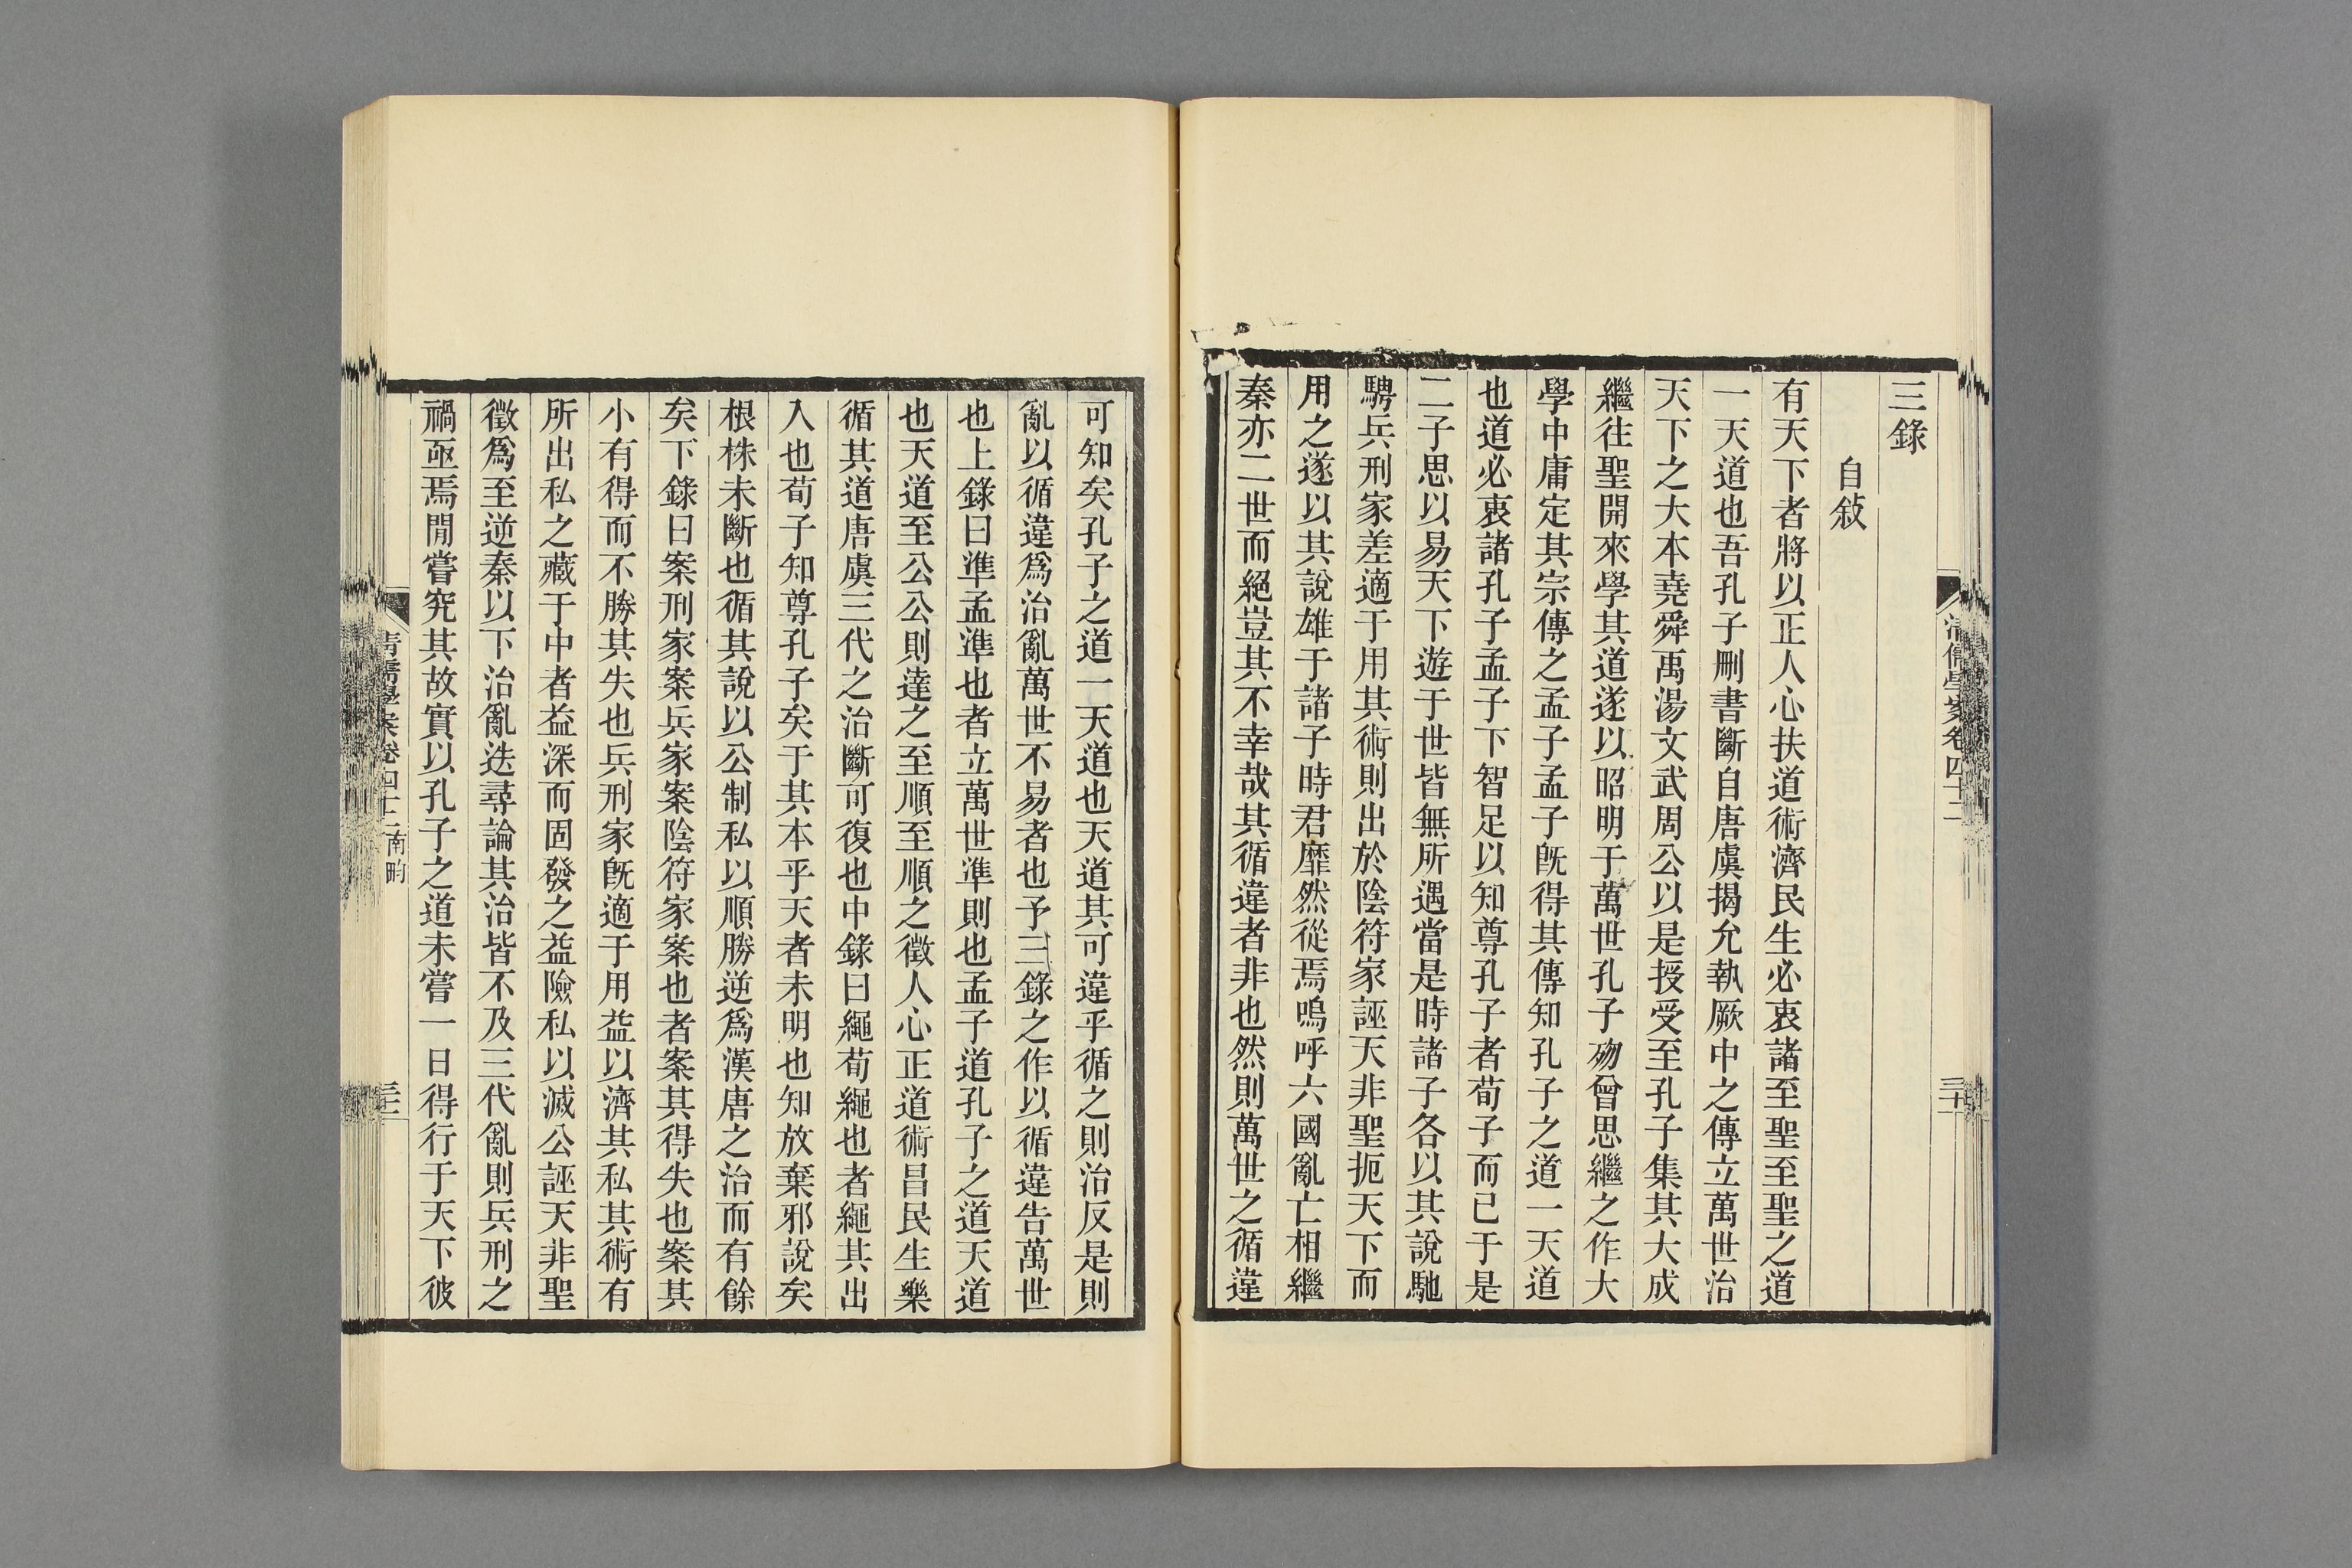 三錄
自敍
有天下者將以正人心扶道術濟民生必衷諸至聖至聖之道
一天道也吾孔子刪書斷自唐虞揭允執厥中之傳立萬世治
天下之大本堯舜禹湯文武周公以是授受至孔子集其大成
繼往聖開來學其道遂以昭明于萬世孔子歿曾思繼之作大
學中庸定其宗傳之孟子孟子旣得其傳知孔子之道一天道
也道必衷諸孔子孟子下智足以知尊孔子者荀子而已于是
二子思以易天下遊于世皆無所遇當是時諸子各以其說馳
騁兵刑家差適于用其術則出於陰符家誣天非聖扼天下而
用之遂以其說雄于諸子時君靡然從焉嗚呼六國亂亡相繼
秦亦二世而絕豈其不幸哉其循違者非也然則萬世之循違
清儒學案卷四十二
可知矣孔子之道一天道也天道其可違乎循之則治反是則
亂以循違爲治亂萬世不易者也予三錄之作以循違告萬世
也上錄曰準孟準也者立萬世準則也孟子道孔子之道天道
也天道至公公則達之至順至順之徵人心正道術昌民生樂
循其道唐虞三代之治斷可復也中錄曰繩荀繩也者繩其出
入也荀子知尊孔子矣于其本乎天者未明也知放棄邪說矣
根株未斷也循其說以公制私以順勝逆爲漢唐之治而有餘
矣下錄曰案刑家案兵家案陰符家案也者案其得失也案其
小有得而不勝其失也兵刑家旣適于用益以濟其私其術有
所出私之藏于中者益深而固發之益險私以滅公誣天非聖
徵爲至逆秦以下治亂迭尋論其治皆不及三代亂則兵刑之
禍亟焉閒嘗究其故實以孔子之道未嘗一日得行于天下彼
清儒學案卷四十二 南畇